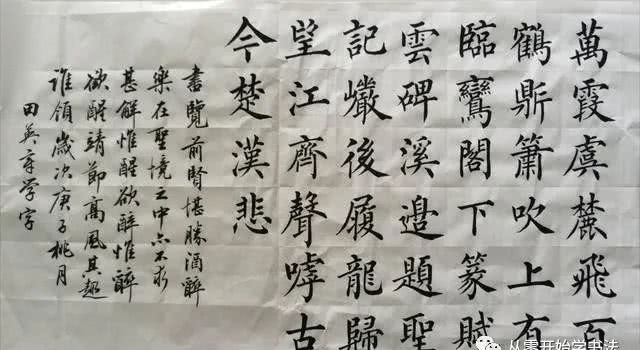 萬霞虞麓飛百
鶴鼎簫吹上有
臨鸞閣下篆賦
雲碑溪邉題聖
記巘後履龍歸
望江齊聲嘑古
今楚漢悲
書覽前賢堪勝酒醉
樂在聖境之中亦不求
甚解惟醒欲醉惟醉
欲醒靖節高風其趣
誰領歲次庚子桃月
田英章学字
从零开始学书法